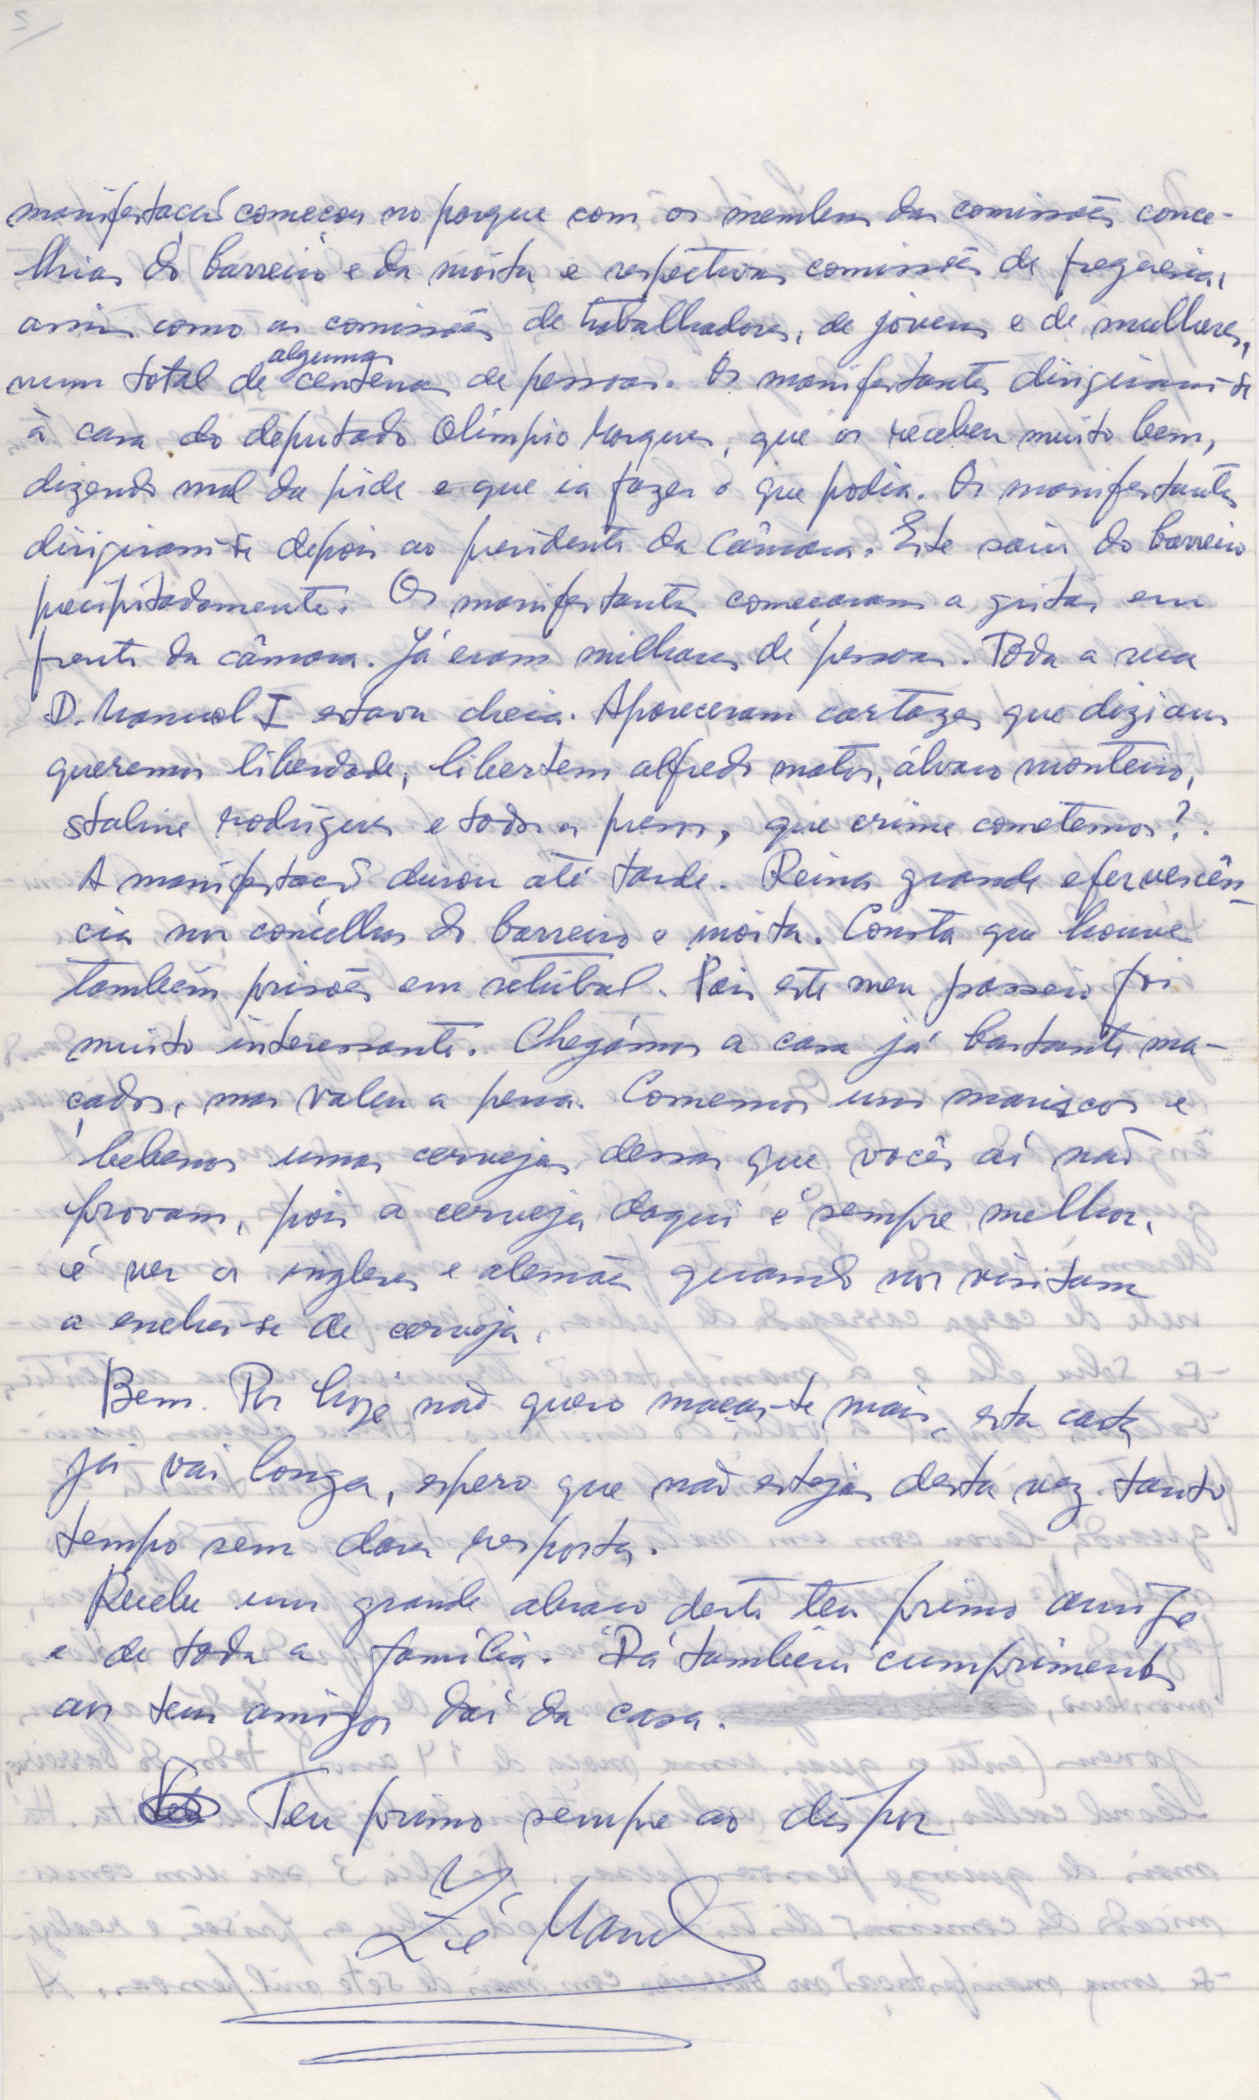 manifestação começou no parque com os membros das comissões conce-
lhias do barreiro e da moita e respectivas comissões de freguesia,
assim como as comissões de trabalhadores, de jovens e de mulheres,
num total de algumas centenas de pessoas. Os manifestantes dirigiram-se
à casa do deputado Olímpio Marques, que os recebeu muito bem,
dizendo mal da pide e que ia fazer o que podia. Os manifestantes
dirigiram-se depois ao presidente da Câmara. Este saiu do barreiro
precipitadamente. Os manifestantes começaram a gritar em
frente da câmara. Já eram milhares de pessoas. Toda a rua
D. Manuel I estava cheia. Apareceram cartazes que diziam
queremos liberdade, libertem alfredo matos, álvaro monteiro,
staline rodrigues e todos os presos, que crime cometemos?.
A manifestação durou até tarde. Reina grande efervescên-
cia nos concelhos do barreiro e moita. Consta que houve
também prisões em setúbal. Pois este meu passeio foi
muito interessante. Chegámos a casa já bastante ma-
çados, mas valeu a pena. Comemos uns mariscos e
bebemos umas cervejas dessas que vocês aí não
provam, pois a cerveja daqui é sempre melhor,
é ver os ingleses e alemães quando nos visitam
a encher-se de cerveja.
Bem. Por hoje não quero maçar-te mais, esta carta
já vai longa, espero que não estejas desta vez tanto
tempo sem dar resposta.
Recebe um grande abraço deste teu primo amigo
e de toda a família. Dá também cumprimentos
aos teus amigos daí da casa.
Teu primo sempre ao dispor
Zé Manel